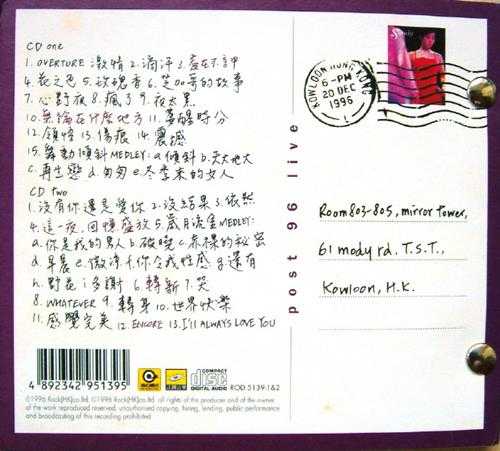 CD one
1. OVERTURE 激情 2. 滴汗 3. 盡在不言中
4. 花之色 5. 玫瑰香 6. 笑哥的故事
7. 心野放 8. 瘋了 9. 夜太黑
10. 無論在什麼地方 11. 薑醋時份
12. 領情 13. 傷痕 14. 震撼
15. 舞動傾斜 MEDLEY: a. 傾斜 b. 天大地大
c. 再生戀 d. 匆匆 e. 冬季來的女人
CD two
1. 沒有你還是愛你 2. 沒結果 3. 依然
4. 這一夜, 回憶盛放 5. 歲月流金 MEDLEY:
a. 你是我的男人 b. 破曉 c. 的秘密
d. 早晨 e. 微涼 f. 你令我性感 g. 還有
h. 野花 i. 多謝 6. 轉新 7. 笑
8. WHATEVER 9. 轉身 10. 世界快樂
11. 感覺完美 12. ENCORE 13. I'LL ALWAYS LOVE YOU
post 96 live
Sandy
KOWLOON HONG KONG
6-PM
20 DEC
1996
1
Room 803-805, mirror tower,
61 mody rd. T.S.T.,
Kowloon, H.K.
4 892342 951395
COMPACT
disc
DIGITAL AUDIO
ROD 5139-1&2
℗1996 Rock(HK)co.ltd. ©1996 Rock(HK)co.ltd. all rights of the producer and of the owner
of the work reproduced reserved. unauthorised copying, hiring, lending, public performance
and broadcasting of this recording prohibited